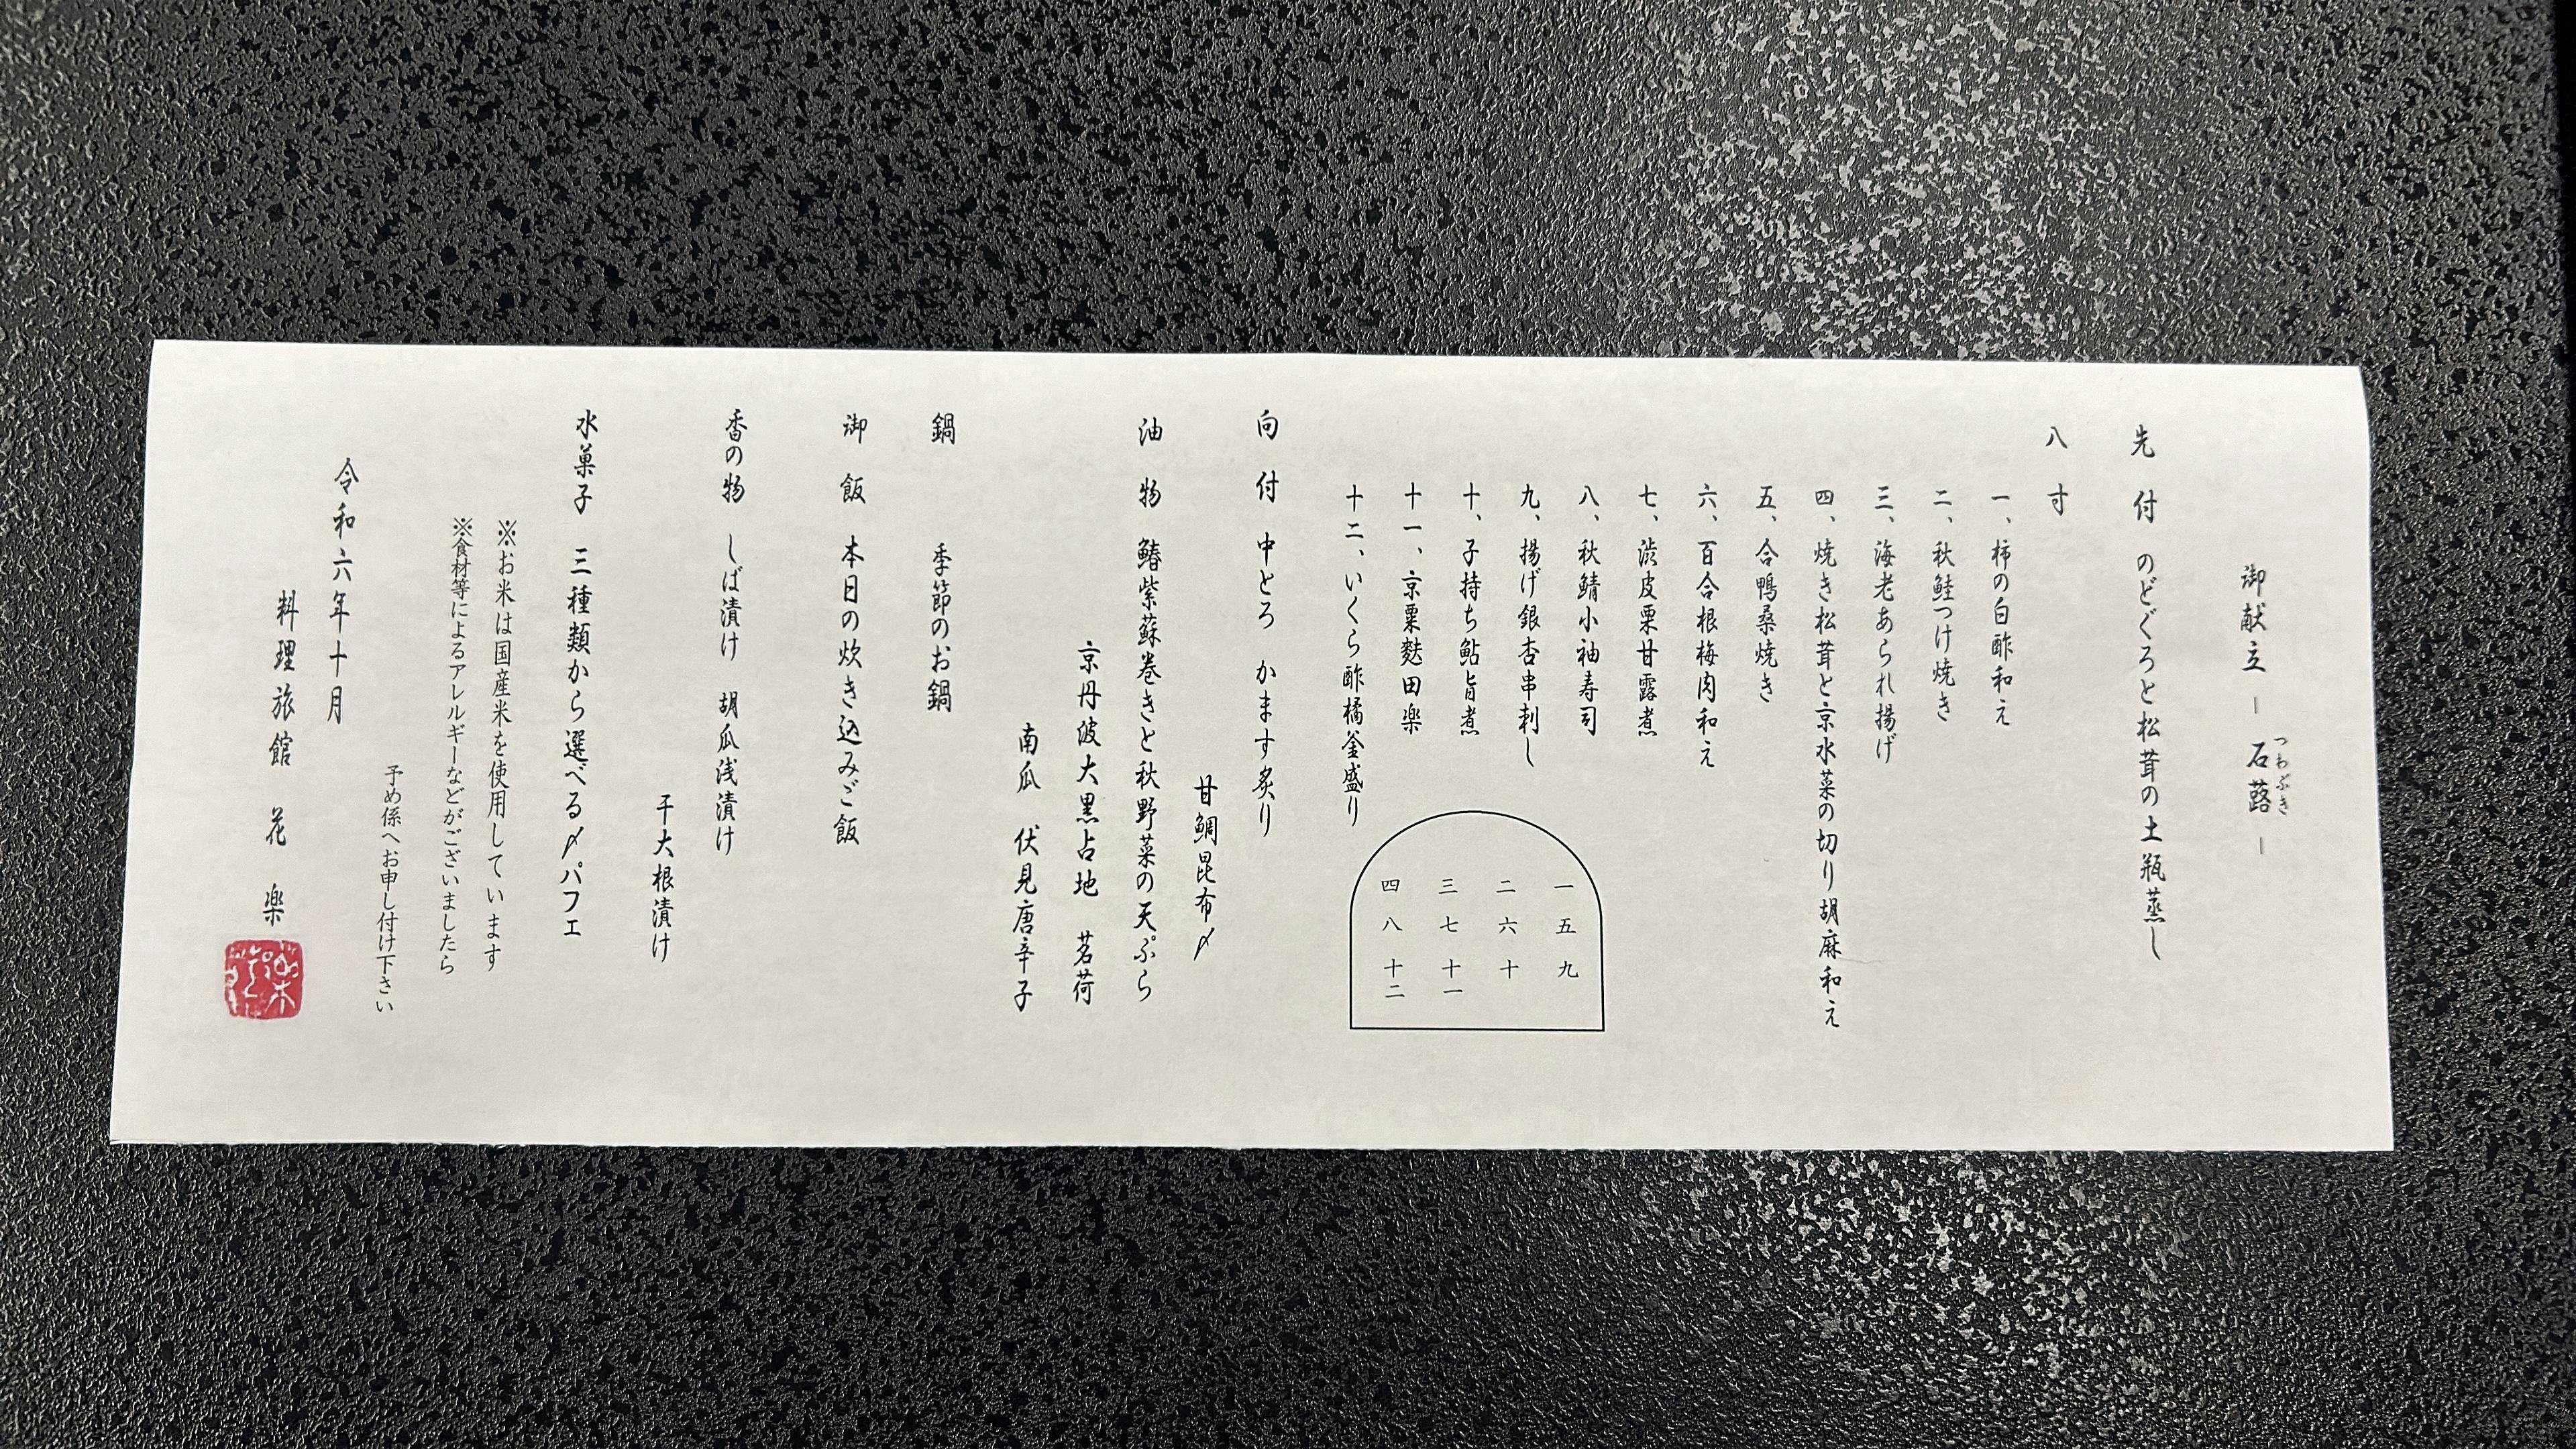 御献立 ― 石蕗 ―
つわぶき
先付 のどぐろと松茸の土瓶蒸し
八寸
一、柿の白酢和え
二、秋鮭つけ焼き
三、海老あられ揚げ
四、焼き松茸と京水菜の切り胡麻和え
五、合鴨桑焼き
六、百合根梅肉和え
七、渋皮栗甘露煮
八、秋鯖小袖寿司
九、揚げ銀杏串刺し
十、子持ち鮎旨煮
十一、京粟麩田楽
十二、いくら酢橘釜盛り
一 五 九
二 六 十
三 七 十一
四 八 十二
向付 中とろ かます炙り
甘鯛昆布〆
油物 鰆紫蘇巻きと秋野菜の天ぷら
京丹波大黒占地 茗荷
南瓜 伏見唐辛子
鍋 季節のお鍋
御飯 本日の炊き込みご飯
香の物 しば漬け 胡瓜浅漬け
干大根漬け
水菓子 三種類から選べる〆パフェ
※お米は国産米を使用しています
※食材等によるアレルギーなどがございましたら
予め係へお申し付け下さい
令和六年十月
料理旅館 花楽